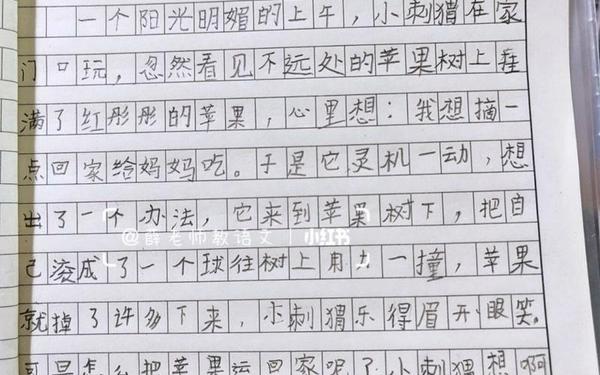 一个阳光明媚的上午，小刺猬在家
门口玩，忽然看见不远处的苹果树上挂
满了红彤彤的苹果，心里想：我想摘一
点回家给妈妈吃。于是它灵机一动，想
出了一个办法，它来到苹果树下，把自
己滚成了一个球往树上用力一撞，苹果
就掉了许多下来，小刺猬乐得眉开眼笑。
可是怎么把苹果运回家呢？小刺猬想啊
@薛老师教语文 | 小红书